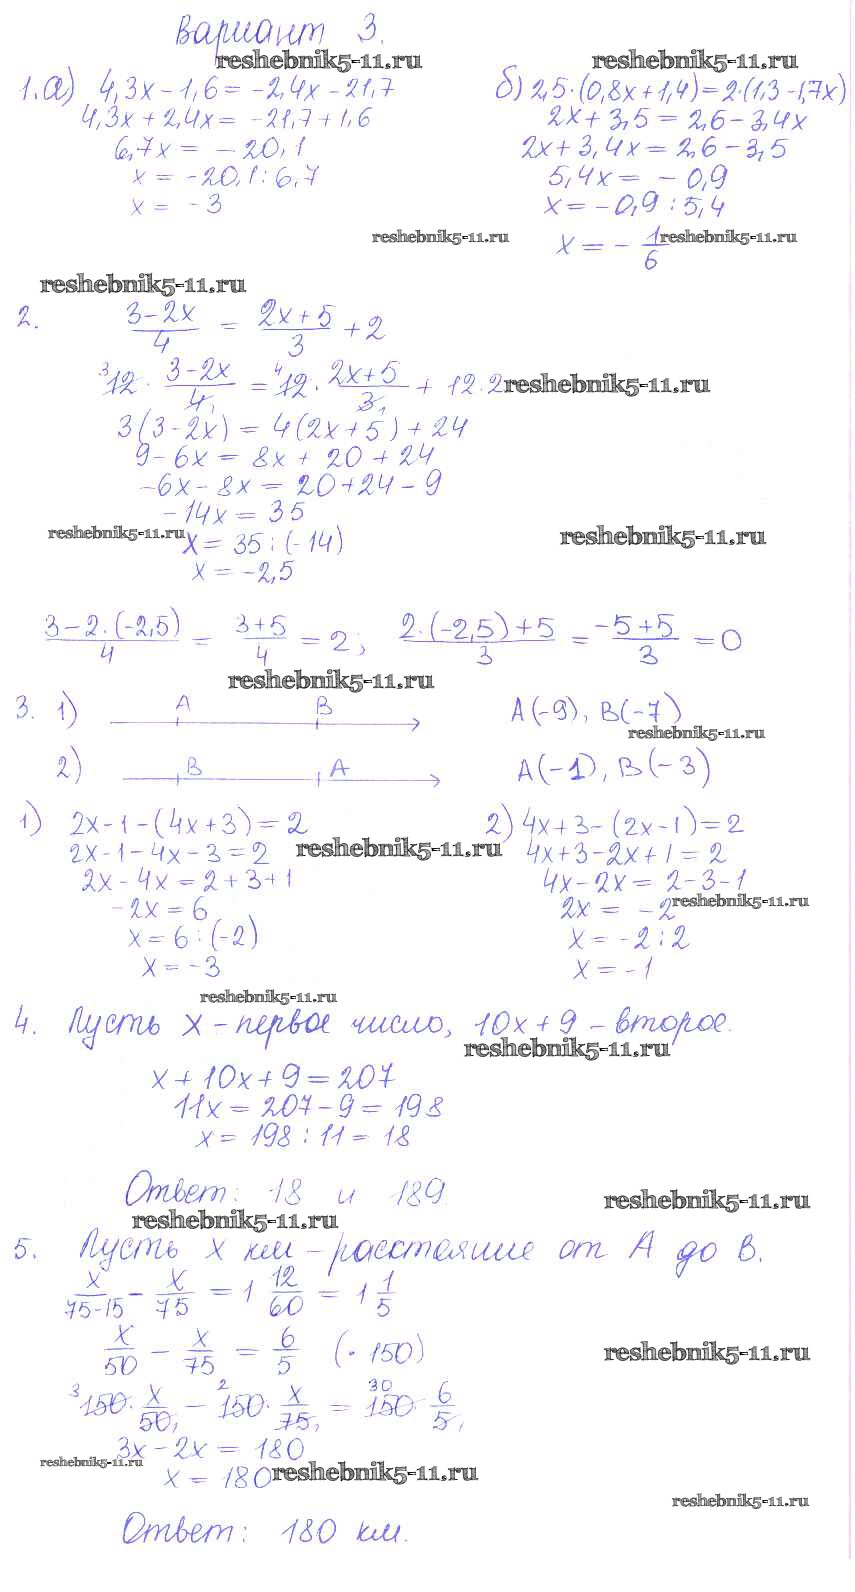 Вариант 3.
reshebnik5-11.ru reshebnik5-11.ru
1. а) 4,3x - 1,6 = -2,4x - 21,7 б) 2,5·(0,8x + 1,4) = 2·(1,3 - 1,7x)
4,3x + 2,4x = -21,7 + 1,6 2x + 3,5 = 2,6 - 3,4x
6,7x = -20,1 2x + 3,4x = 2,6 - 3,5
x = -20,1 : 6,7 5,4x = -0,9
x = -3 x = -0,9 : 5,4
reshebnik5-11.ru x = -1/6 reshebnik5-11.ru
reshebnik5-11.ru
2. (3-2x)/4 = (2x+5)/3 + 2
³12 · (3-2x)/4₁ = ⁴12 · (2x+5)/3₁ + 12·2 reshebnik5-11.ru
3(3-2x) = 4(2x+5) + 24
9 - 6x = 8x + 20 + 24
-6x - 8x = 20 + 24 - 9
-14x = 35
reshebnik5-11.ru x = 35 : (-14) reshebnik5-11.ru
x = -2,5
(3-2·(-2,5))/4 = (3+5)/4 = 2; (2·(-2,5)+5)/3 = (-5+5)/3 = 0
reshebnik5-11.ru
3. 1) A B A(-9), B(-7)
reshebnik5-11.ru
2) B A A(-1), B(-3)
1) 2x - 1 - (4x + 3) = 2 2) 4x + 3 - (2x - 1) = 2
2x - 1 - 4x - 3 = 2 reshebnik5-11.ru 4x + 3 - 2x + 1 = 2
2x - 4x = 2 + 3 + 1 4x - 2x = 2 - 3 - 1
-2x = 6 2x = -2 reshebnik5-11.ru
x = 6 : (-2) x = -2 : 2
x = -3 x = -1
reshebnik5-11.ru
4. Пусть x - первое число, 10x + 9 - второе.
reshebnik5-11.ru
x + 10x + 9 = 207
11x = 207 - 9 = 198
x = 198 : 11 = 18
Ответ: 18 и 189.
reshebnik5-11.ru reshebnik5-11.ru
5. Пусть x км - расстояние от A до B.
x/(75-15) - x/75 = 1 12/60 = 1 1/5
x/50 - x/75 = 6/5 (·150) reshebnik5-11.ru
³150 · x/50₁ - ²150 · x/75₁ = ³⁰150 · 6/5₁
3x - 2x = 180
reshebnik5-11.ru x = 180 reshebnik5-11.ru
reshebnik5-11.ru
Ответ: 180 км.